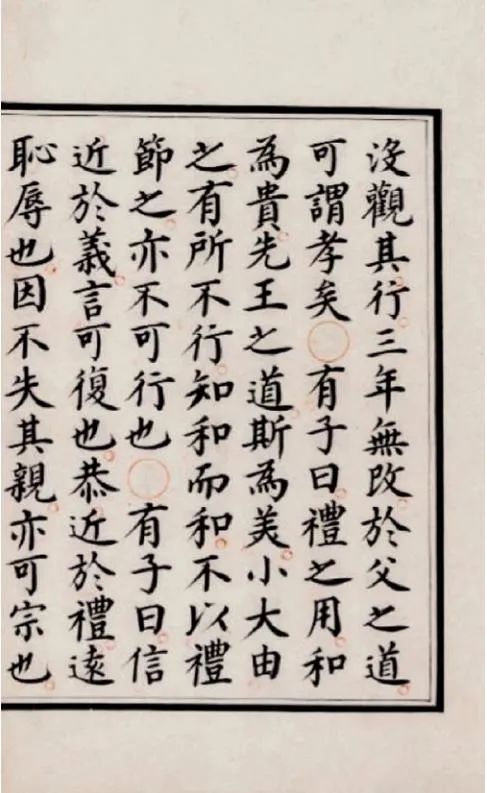 沒觀其行三年無改於父之道
可謂孝矣○有子曰禮之用和
為貴先王之道斯為美小大由
之有所不行知和而和不以禮
節之亦不可行也○有子曰信
近於義言可復也恭近於禮遠
恥辱也因不失其親亦可宗也